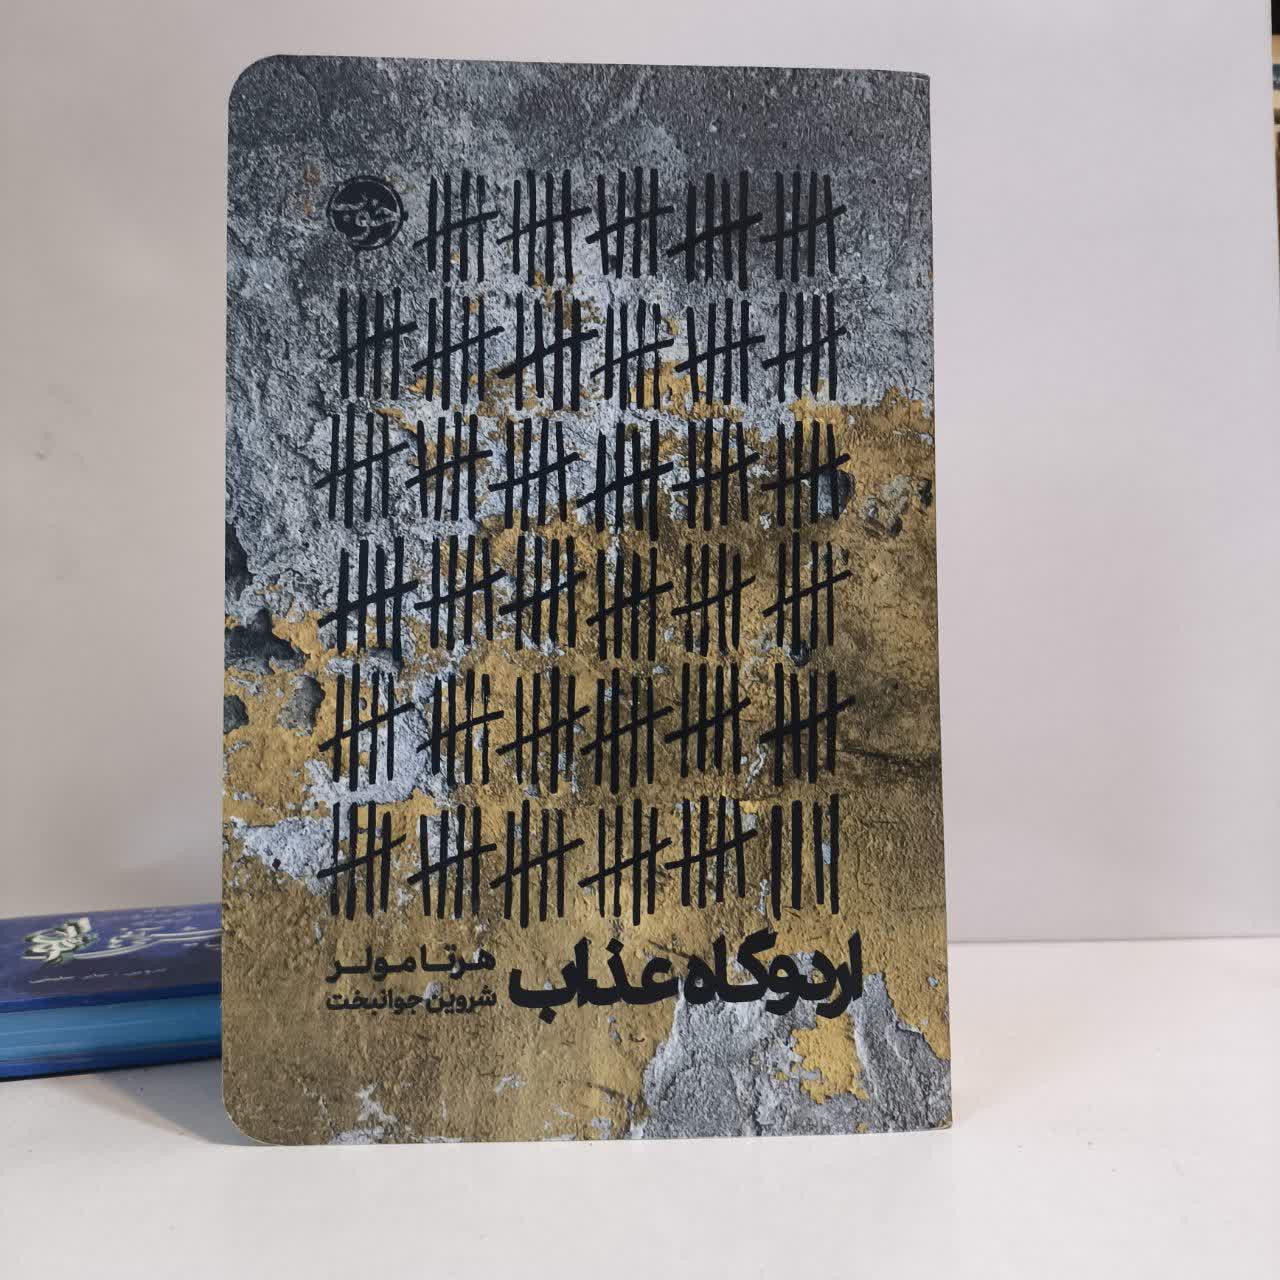 اردوگاه عذاب
هرتا مولر
شروین جوانبخت